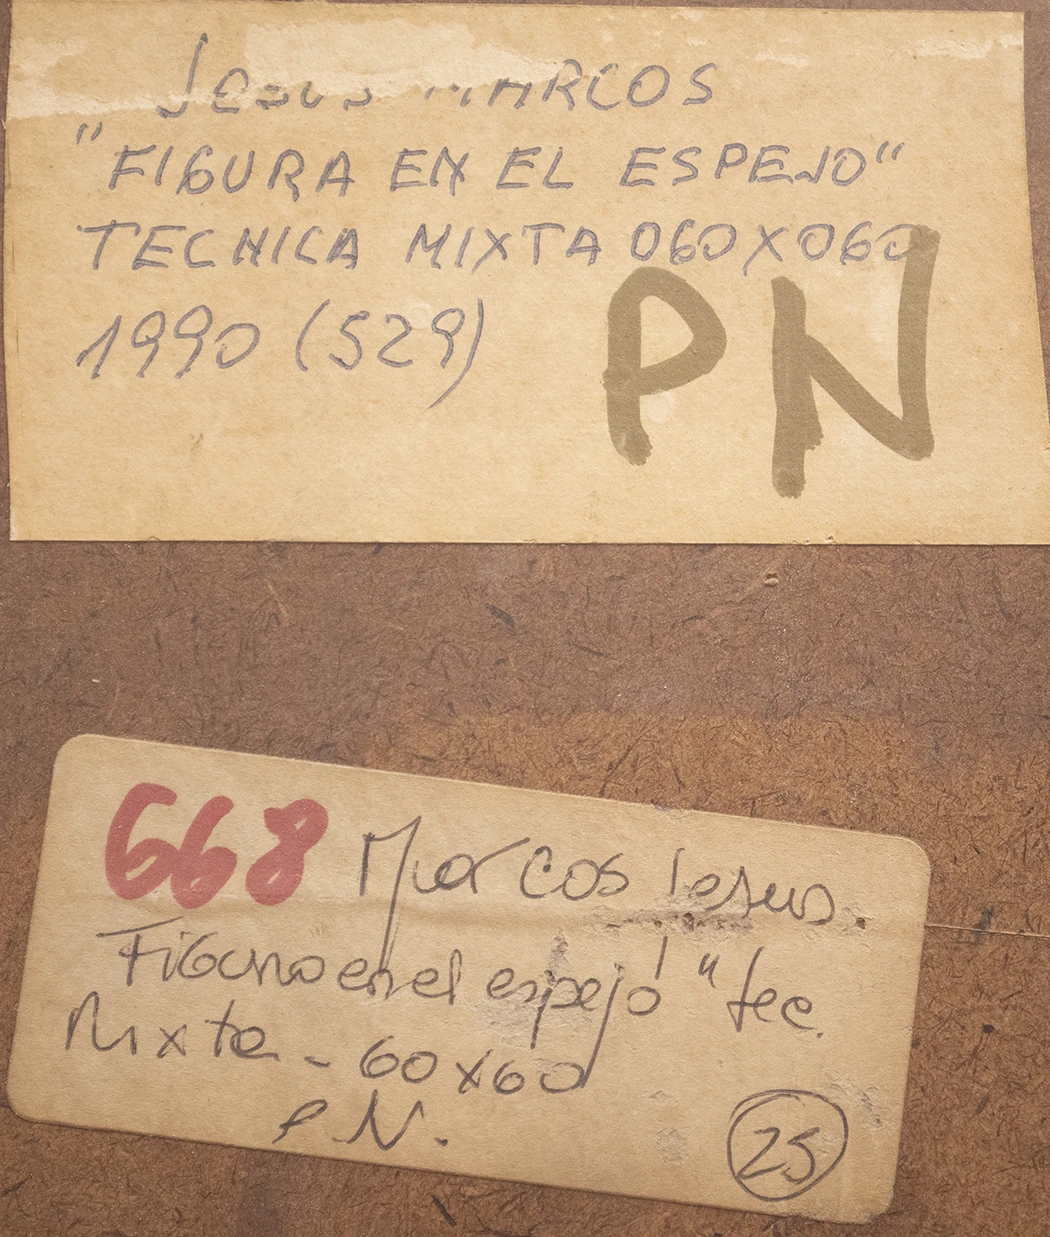 JESUS MARCOS
"FIGURA EN EL ESPEJO"
TECNICA MIXTA 060X060
1990 (529)
PN
668 Marcos Jesus.
Figura en el espejo" tec.
Mixta - 60x60
P.N.
25